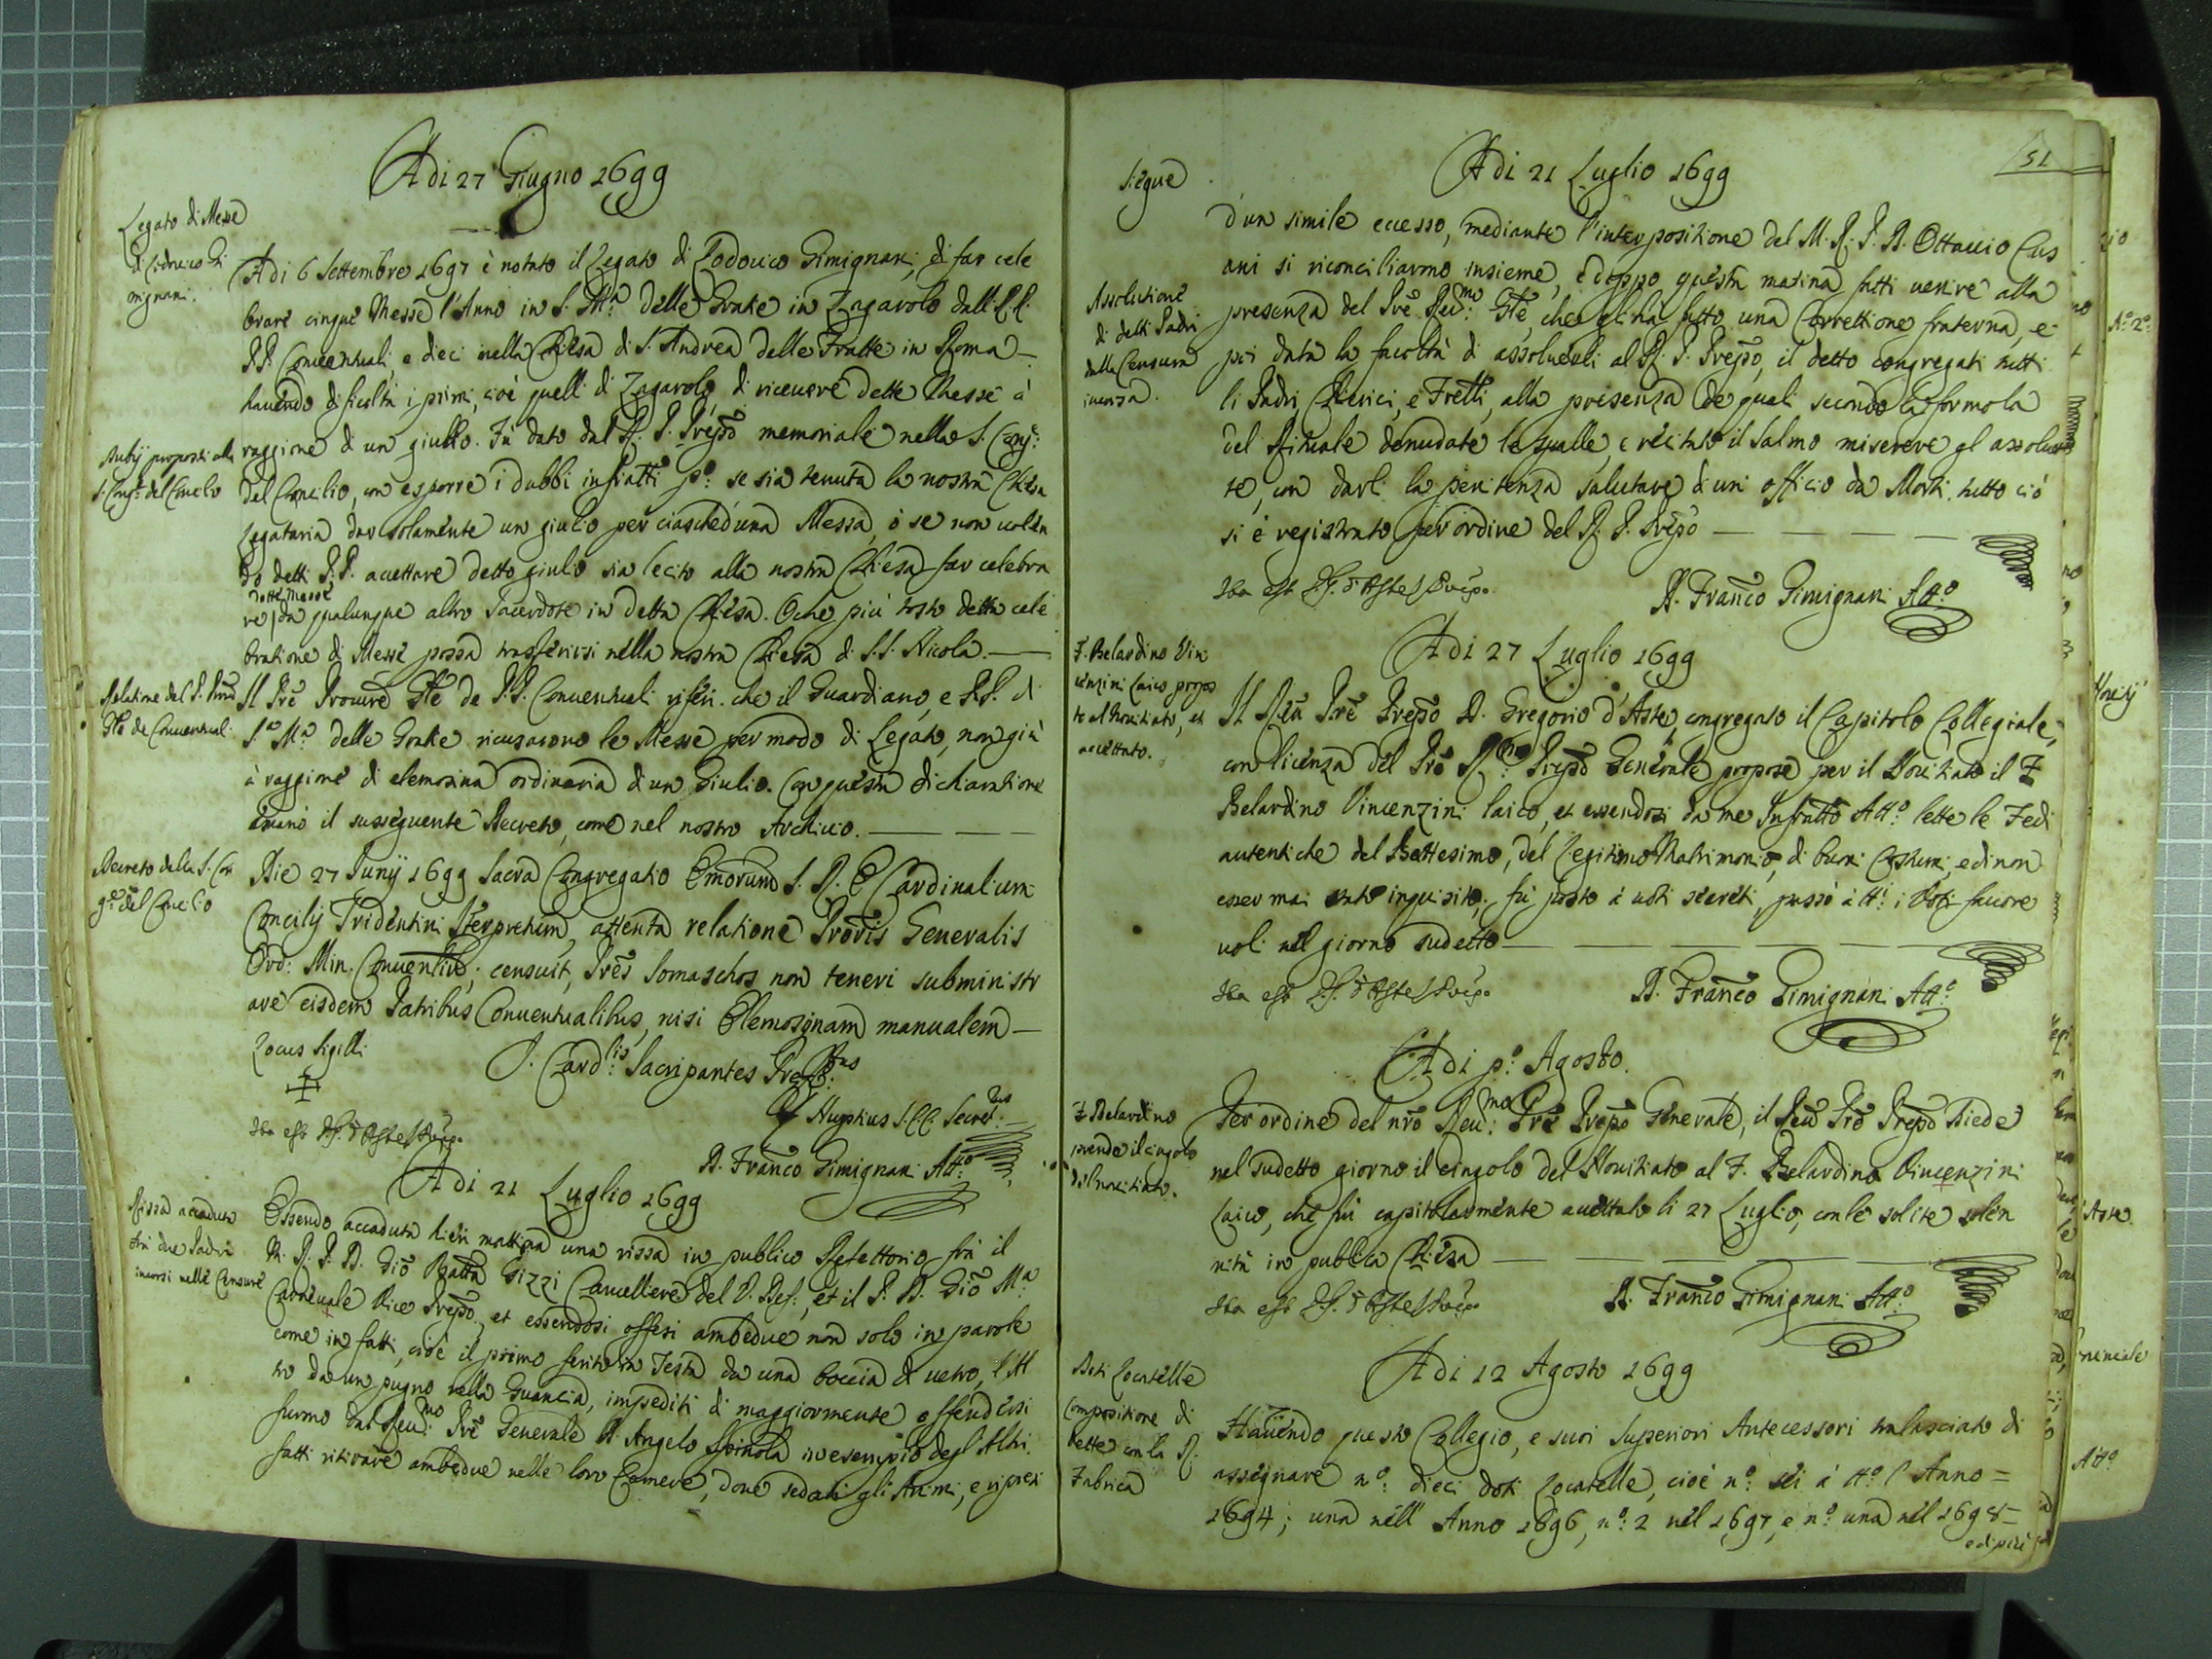 Adi 27 Giugno 1699
Legato di Messe
di Lodovico Gi
mignani.
Adi 6 Settembre 1697 è notato il Legato di Lodovico Gimignani, di far cele
brare cinque Messe l'Anno in S. Mᵃ delle Gratie in Zagarolo dalli RR.
PP. Conventuali, e dieci nella Chiesa di S. Andrea delle Fratte in Roma —
havendo dificoltà i primi, cioè quelli di Zagarolo, di ricevere dette Messe à
raggione di un giulio. Fù dato dal R. P. Prepo memoriale nella S. Congᵉ:
Dubij proposti alla
S. Congᵉ del Concilo
del Concilio, con esporre i dubbi infratti pᵒ: se sia tenuta la nostra Chiesa
Legataria dar solamente un giulio per ciasched'una Messa, ò se non volen
do detti P.P. accettare detto giulio sia lecito alla nostra Chiesa far celebra
dette Messe
re da qualunque altro Sacerdote in detta Chiesa. O che più tosto detta cele
bratione di Messe possa trasferirsi nella nostra Chiesa di S.S. Nicola. —
Relatione del P. Procre
Gle de Conventuali
Il Prē Procurē Gle de P.P. Conventuali riferì che il Guardiano, e P.P. di
Sᵃ Mᵃ delle Gratie ricusarono le Messe per modo di Legato, non già
à raggione di elemosina ordinaria d'un Giulio. Con questa dichiaratione
emanò il susseguente Decreto, come nel nostro Archivio. — — —
Decreto della S. Con
gᵉ del Concilio
Die 27 Junij 1699 Sacra Congregatio Emorum S. R. E. Cardinalium
Concilij Tridentini Interpretum, attenta relatione Proris Generalis
Ord: Min. Conventliu; censuit, Pres Somaschos non teneri subministr
are eisdem Patribus Conventualibus, nisi Elemosynam manualem —
Locus Sigilli
J. Cardˡⁱˢ Sacripantes Prefᵘˢ
S.C.C. Secretˢ
Ita est D. G. d'Aste Prēpo
D. Franco Gimignani Attᵒ
Adi 21 Luglio 1699
Rissa accaduta
trà due Padri
incorsi nelle Censure
Essendo accaduta hieri mattina una rissa in publico Refettorio frà il
M. R. P. D. Giō Batta Gizzi Cancelliere del V. Def:, et il P. D. Giō Mᵃ
Carnevale Vice Prepo, et essendosi offesi ambedue non solo in parole
come in fatti, cioè il primo ferito in Testa da una boccia di vetro, l'Al
tro da un pugno nella Guancia, impediti di maggiormente offendersi
furno dal Reuᵐᵒ Prē Generale D. Angelo Spinola in esempio degl'Altri.
fatti ritirare ambedue nelle loro Camere, dove sedati gli Animi, e ripresi
51
Adi 21 Luglio 1699
siegue
d'un simile eccesso, mediante l'interpositione del M. R. P. D. Ottavio Cus
ani si riconciliarno insieme, e doppo questa matina fatti venire alla
Assolutione
di detti Padri
dalla Censura
incorsa.
presenza del Prē Reuᵐᵒ: Gle, che gli hà fatto una Correttione fraterna, e
poi data la facoltà di assolverli al R. P. Prepo, il detto congregati tutti
li Padri, Chierici, e Frelli, alla presenza de quali secondo la formola
del Rituale denudate le spalle, e recitato il Salmo miserere gl'assolue
te, con darli la penitenza salutare d'un officio da Morti, tutto ciò
si è registrato per ordine del R. P. Prepo — — — —
Ita est D. G. d'Aste Prēpo
D. Franco Gimignani Attᵒ
Adi 27 Luglio 1699
F. Belardino Vin
cenzini laico propos
to al Novitiato, et
accettato.
Il Reu Prē Prepo D. Gregorio d'Aste, congregato il Capitolo Collegiale,
con licenza del Prē Rᵐᵒ: Prepo Generale propose per il Novitiato il F
Belardino Vincenzini laico, et essendosi da me Infratto Attᵒ lette le Fedi
autentiche del Battesimo, del legitimo Matrimonio, di buoni Costumi, e di non
esser mai stato inquisito, fù posto à voti secreti, passò à tti i Voti favore
voli nel giorno sudetto — — — —
Ita est D. G. d'Aste Prēpo
D. Franco Gimignani Attᵒ
Adi pᵒ Agosto.
F. Belardino
prende il cingolo
del novitiato.
Per ordine del nrō Reuᵐᵒ: Prē Prepo Generale, il Reu Prē Prepo Diede
nel sudetto giorno il cingolo del Novitiato al F. Belardino Vincenzini
Laico, che fù capitolarmente accettato li 27 Luglio, con le solite solen
nità in publica Chiesa — — — —
Ita est D. G. d'Aste Prēpo
D. Franco Gimignani Attᵒ
Adi 12 Agosto 1699
Doti Locatelle
Compositione di
dette con la R.
Fabrica
Havendo questo Collegio, e suoi Superiori Antecessori tralasciato di
assegnare nᵒ: dieci doti Locatelle, cioè nᵒ: sei à ttᵒ l'Anno =
1694; una nell'Anno 1696, nᵒ: 2 nel 1697, e nᵒ: una nel 1698 =
e di più